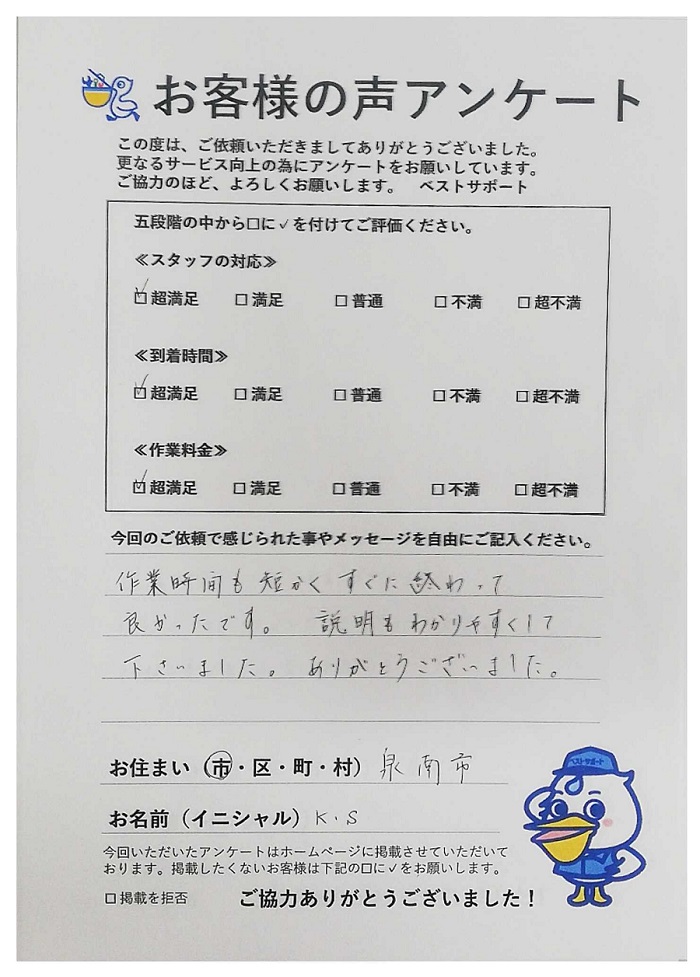 お客様の声アンケート
この度は、ご依頼いただきましてありがとうございました。
更なるサービス向上の為にアンケートをお願いしています。
ご協力のほど、よろしくお願いします。 ベストサポート
五段階の中から□に✓を付けてご評価ください。
≪スタッフの対応≫
☑超満足 □満足 □普通 □不満 □超不満
≪到着時間≫
☑超満足 □満足 □普通 □不満 □超不満
≪作業料金≫
☑超満足 □満足 □普通 □不満 □超不満
今回のご依頼で感じられた事やメッセージを自由にご記入ください。
作業時間も短かくすぐに終わって
良かったです。 説明もわかりやすくして
下さいました。ありがとうございました。
お住まい（市・区・町・村）泉南市
ベストサポート
お名前（イニシャル）K・S
今回いただいたアンケートはホームページに掲載させていただいて
おります。掲載したくないお客様は下記の□に✓をお願いします。
□掲載を拒否 ご協力ありがとうございました！